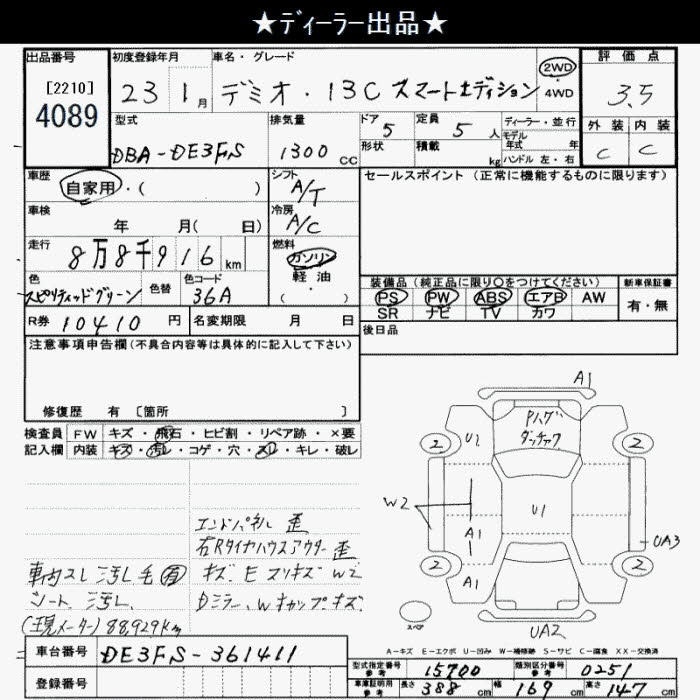 ★ディーラー出品★
出品番号 初度登録年月 車名・グレード 評価点
[2210] 4089 23 1月 デミオ・13C スマートエディション 2WD・4WD 3.5
型式 排気量 ドア 定員 ディーラー・並行 外装 内装
DBA-DE3FS 1300CC 5 5人 モデル年式 年 C C
形状 積載 kg ハンドル 左・右
車歴 シフト セールスポイント(正常に機能するものに限ります)
自家用・( ) A/T
車検 冷房
年 月( 日) A/C
走行 燃料
8万8千916km ガソリン
軽油
色 色替 色コード ・
スピリティッドグリーン 36A ( )
装備品(純正品に限り○をつけてください) 新車保証書
PS PW ABS エアB AW 有・無
SR ナビ TV カワ
R券 10410円 名変期限 月 日 後日品
注意事項申告欄(不具合内容等は具体的に記入して下さい)
修復歴 有 [箇所 ]
検査員 FW キズ・飛石・ヒビ割・リペア跡・×要
記入欄 内装 キズ・汚レ・コゲ・穴・スレ・キレ・破レ
A1
Pハゲ
タッチアク
2 U1 2
W2 U1
A1 UA3
2 A1 2
スペア
UA2
エンドパネル 歪
右Rタイヤハウスアウター 歪
車内スレ 汚レ 毛 有 キズ・E スリキズ W2
シート 汚レ Dミラー、Wキャップ・キズ
(現メーター) 88,929km
A-キズ E-エクボ U-凹み W-補修跡 S-サビ C-腐食 XX-交換済
車台番号 DE3FS-361411
登録番号
型式指定番号参考 15700 類別区分番号参考 0251
車庫証明用参考 長さ 388cm 幅 169cm 高さ 147cm